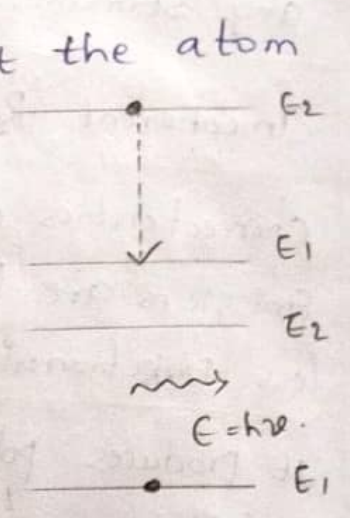 t the atom
E2
E1
E2
E=hν.
E1